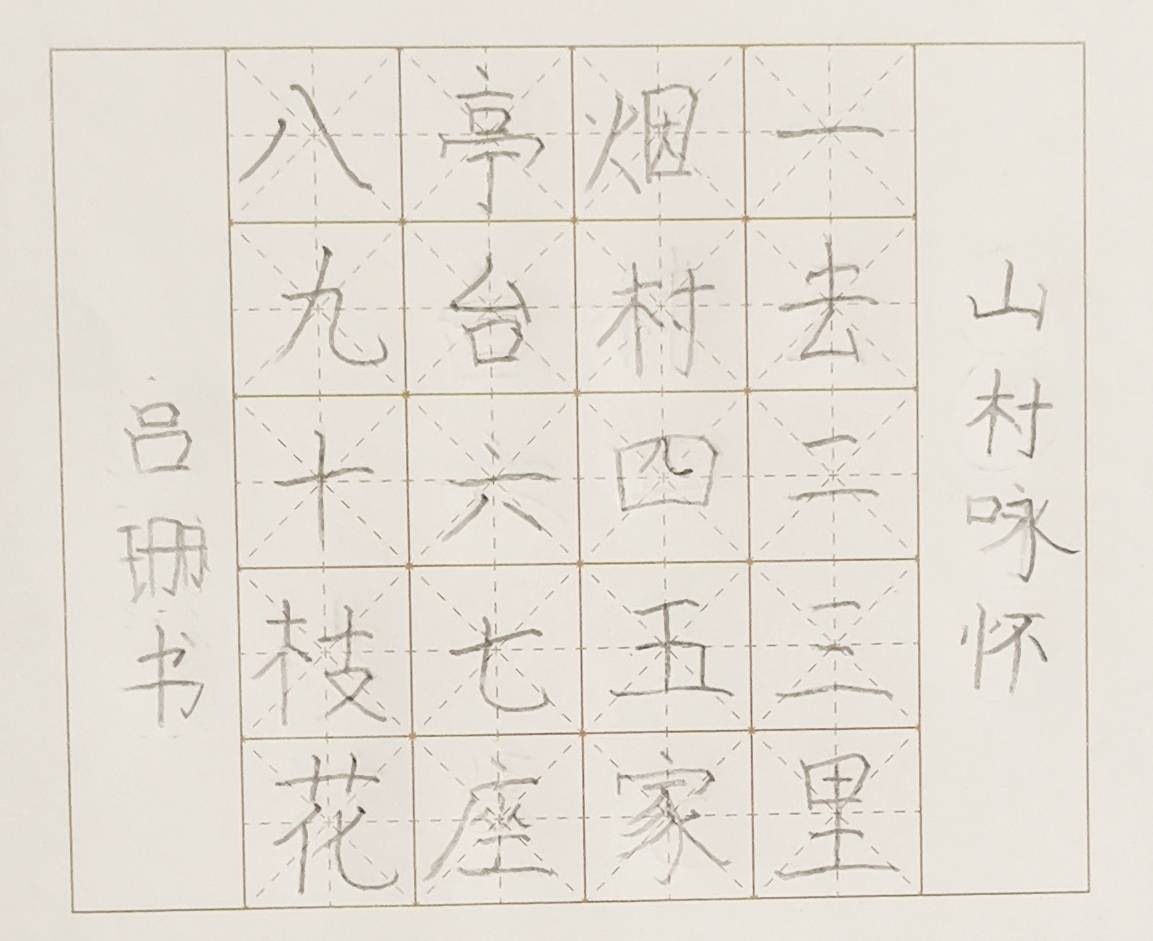 山村咏怀
一去二三里
烟村四五家
亭台六七座
八九十枝花
吕珊书